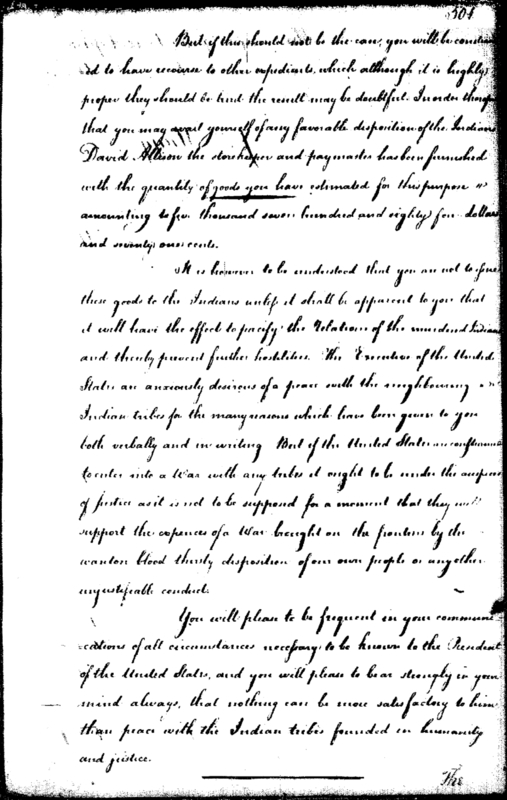 504
But if this should not be the case, you will be constrain
ed to have recourse to other expedients, which although it is highly
proper they should be tried the result may be doubtful. In order therefore
that you may avail yourself of any favorable disposition of the Indians
David Allison the storekeeper and paymaster has been furnished
with the quantity of goods you have estimated for this purpose
amounting to five thousand seven hundred and eighty four dollars
and seventy one cents.
It is however to be understood that you are not to issue
these goods to the Indians unless it shall be apparent to you that
it will have the effect to pacify the relations of the murdered Indians
and thereby prevent further hostilities. The Executive of the United
States are anxiously desirous of a peace with the neighbouring
Indian tribes for the many reasons which have been given to you
both verbally and in writing But if the United States are constrained
to enter into a War with any tribes it ought to be under the auspices
of Justice as it is not to be supposed for a moment that they will
support the expences of a War brought on the frontiers by the
wanton blood thirsty disposition of our own people or any other
unjustifiable conduct.
You will please to be frequent in your communi
cations of all circumstances necessary to be known to the President
of the United States, and you will please to bear strongly in your
mind always, that nothing can be more satisfactory to him
than peace with the Indian tribes founded in humanity
and justice.
The